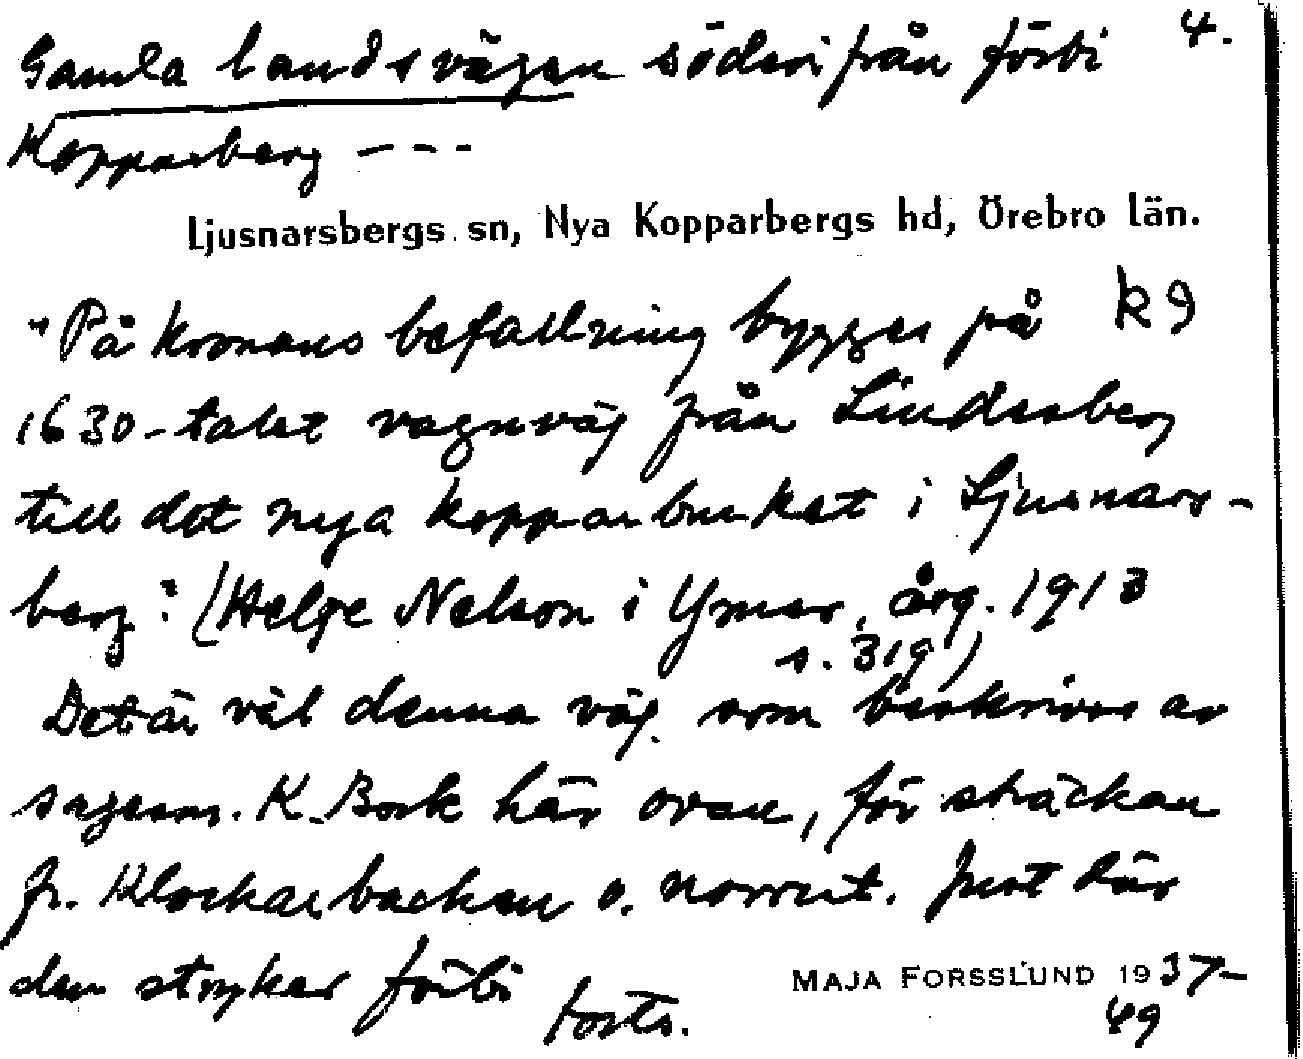 Gamla landsvägen söderifrån förbi 4.
Kopparberg - - -
Ljusnarsbergs sn, Nya Kopparbergs hd, Örebro län.
"På kronans befallning bygges på k 9
1630-talet vagnväg från Lindesberg
till det nya kopparbruket i Ljusnars-
berg." (Helge Nelson i Ymer, årg. 1913
s. 319)
Det är väl denna väg som beskrives av
sagesm. K. Bork här ovan, för sträckan
fr. Klockarbacken o. norrut. Just där
den stryker förbi
forts.
MAJA FORSSLUND 1937-
49